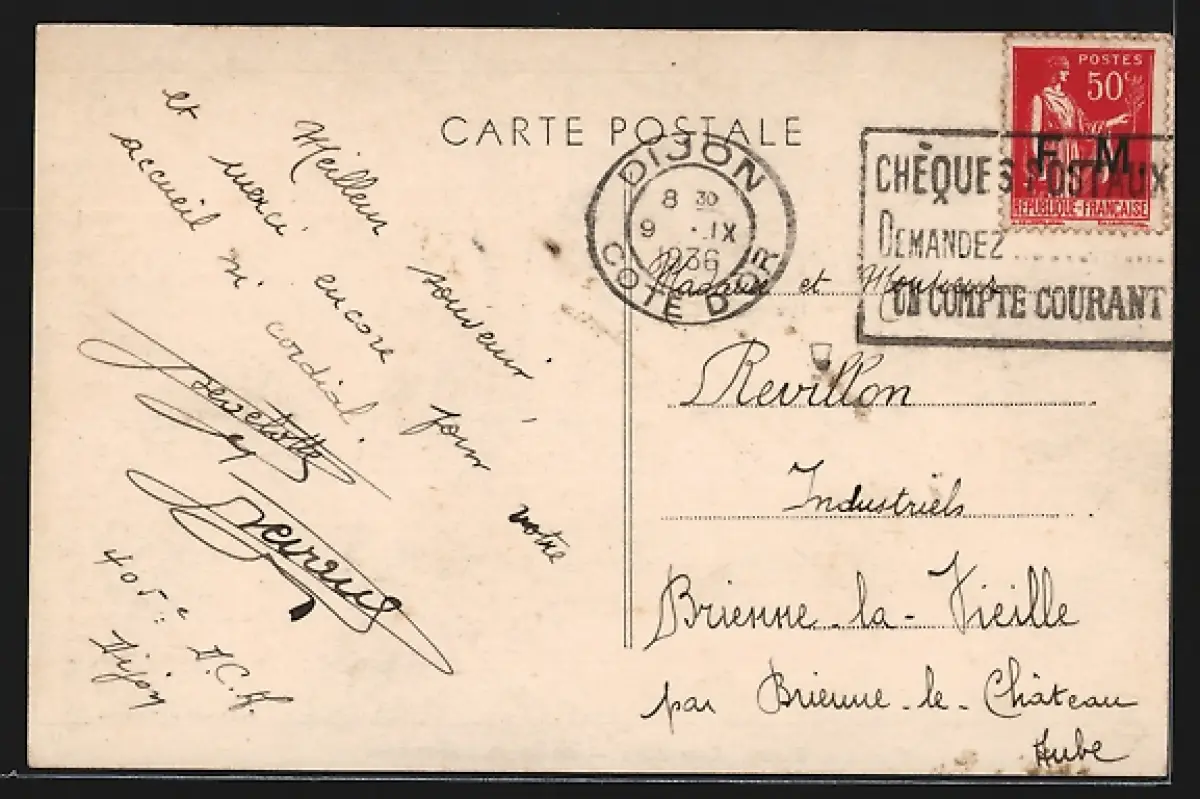 CARTE POSTALE
POSTES
50c
F M
REPUBLIQUE-FRANÇAISE
DIJON
8 30
9 . IX
1936
COTE D'OR
CHÈQUES POSTAUX
DEMANDEZ
UN COMPTE COURANT
Meilleur souvenir
et merci encore pour votre
accueil si cordial.
405e D.C.A.
Dijon
Madame et Monsieur
Revillon
Industriels
Brienne-la-Vieille
par Brienne-le-Château
Aube